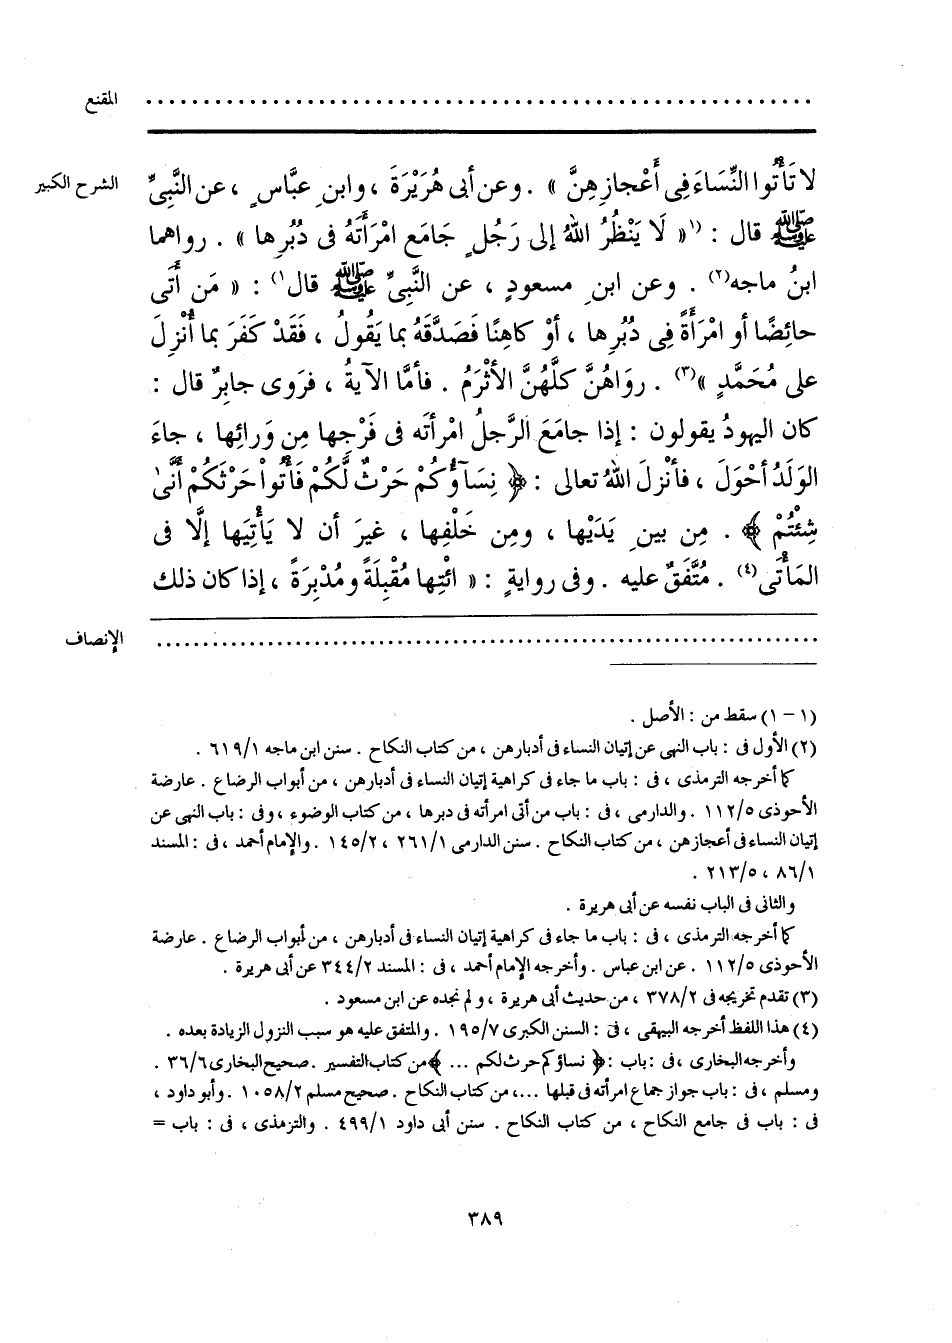 المقنع ..........................................................
الشرح الكبير
لا تَأْتُوا النِّسَاءَ فِى أَعْجازِهِنَّ » . وعن أبى هُرَيْرَةَ ، وابنِ عبَّاسٍ ، عن النَّبِىِّ
ﷺ قال : (١« لَا يَنْظُرُ اللهُ إلى رَجُلٍ جَامَعَ امْرَأَتَهُ فى دُبُرِها » . رواهما
ابنُ ماجه(٢) . وعن ابنِ مسعودٍ ، عن النَّبِىِّ ﷺ قال١) : « مَن أَتَى
حائِضًا أو امْرَأَةً فِى دُبُرِها ، أوْ كاهِنًا فَصَدَّقَهُ بما يَقُولُ ، فَقَدْ كَفَرَ بما أُنْزِلَ
على مُحَمَّدٍ »(٣) . روَاهُنَّ كلَّهُنَّ الأثْرَمُ . فأمَّا الآيةُ ، فرَوى جابِرٌ قال :
كان اليهودُ يقولون : إذا جامَعَ الرَّجلُ امْرأتَه فى فَرْجِها مِن وَرائِها ، جاءَ
الوَلَدُ أحْوَلَ ، فأنْزلَ اللهُ تعالى : ﴿ نِسَآؤُكُمْ حَرْثٌ لَّكُمْ فَأْتُواْ حَرْثَكُمْ أَنَّىٰ
شِئْتُمْ ﴾ . مِن بينِ يَدَيْها ، ومِن خَلْفِها ، غيرَ أن لا يَأْتِيَها إلَّا فى
المَأْتَى(٤) . مُتَّفَقٌ عليه . وفى روايةٍ : « ائْتِها مُقْبِلَةً ومُدْبِرَةً ، إذا كان ذلك
الإنصاف ..........................................................
(١ – ١) سقط من : الأصل .
(٢) الأول فى : باب النهى عن إتيان النساء فى أدبارهن ، من كتاب النكاح . سنن ابن ماجه ٦١٩/١ .
كما أخرجه الترمذى ، فى : باب ما جاء فى كراهية إتيان النساء فى أدبارهن ، من أبواب الرضاع . عارضة
الأحوذى ١١٢/٥ . والدارمى ، فى : باب من أتى امرأته فى دبرها ، من كتاب الوضوء ، وفى : باب النهى عن
إتيان النساء فى أعجازهن ، من كتاب النكاح . سنن الدارمى ٢٦١/١ ، ١٤٥/٢ . والإمام أحمد ، فى : المسند
٨٦/١ ، ٢١٣/٥ .
والثانى فى الباب نفسه عن أبى هريرة .
كما أخرجه الترمذى ، فى : باب ما جاء فى كراهية إتيان النساء فى أدبارهن ، من أبواب الرضاع . عارضة
الأحوذى ١١٢/٥ . عن ابن عباس . وأخرجه الإمام أحمد ، فى : المسند ٣٤٤/٢ عن أبى هريرة .
(٣) تقدم تخريجه فى ٣٧٨/٢ ، من حديث أبى هريرة ، ولم نجده عن ابن مسعود .
(٤) هذا اللفظ أخرجه البيهقى ، فى : السنن الكبرى ١٩٥/٧ . والمتفق عليه هو سبب النزول الزيادة بعده .
وأخرجه البخارى ، فى : باب : ﴿ نساؤكم حرث لكم ... ﴾ من كتاب التفسير . صحيح البخارى ٣٦/٦ .
ومسلم ، فى : باب جواز جماع امرأته فى قبلها ... ، من كتاب النكاح . صحيح مسلم ١٠٥٨/٢ . وأبو داود ،
فى : باب فى جامع النكاح ، من كتاب النكاح . سنن أبى داود ٤٩٩/١ . والترمذى ، فى : باب =
٣٨٩